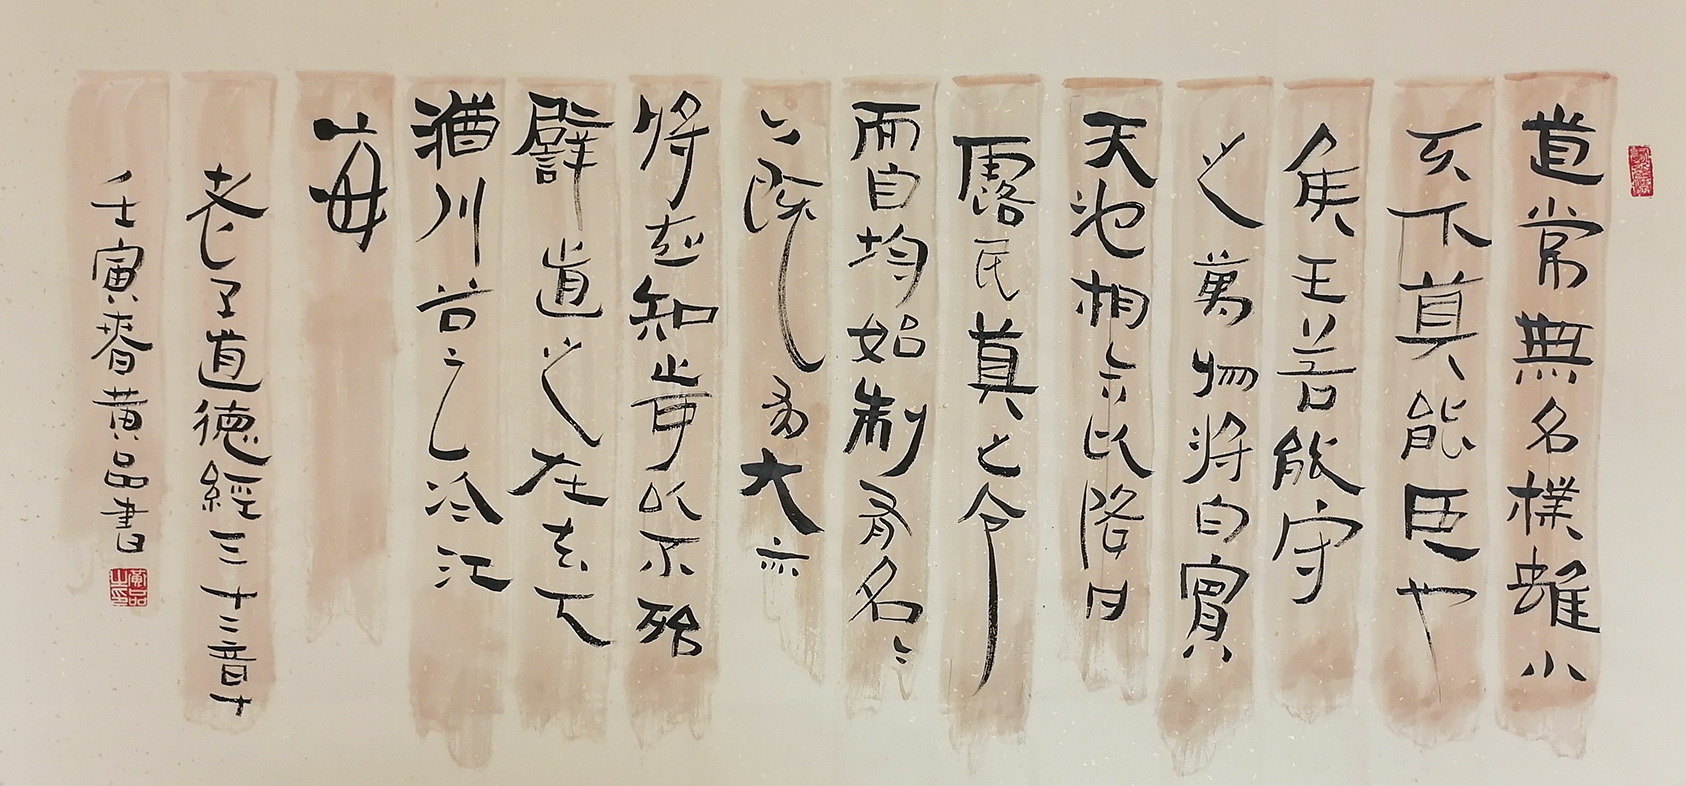 道常無名樸雖小
天下莫能臣也
侯王若能守
之萬物將自賓
天地相合以降甘
露民莫之令
而自均始制有名々
亦既有大亦
將知止可以不殆
譬道之在天下
猶川谷之江
海
老子道德經三十二章
壬寅春黃品書
黃品之印